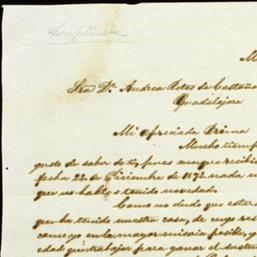 Duplicada
M
Sra. Da. Andrea Petes de Castaño
Guadalajara
Mi apreciada Prima
Mucho tiemp
gusto de saber de ti, pues aunque recibi
fecha 23. de Diciembre de 1873. nada m
que no habia tenido novedad.
Como no dudo que estar
que ha tenido nuestra casa, de cuyo res
camos yo en la mayor miseria posible, y
edad que trabajar para ganar el susten